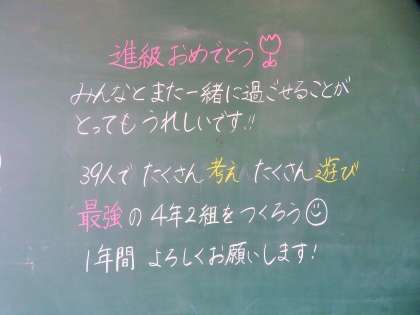 進級おめでとう
みんなとまた一緒に過ごせることが
とってもうれしいです!!
39人で たくさん考え たくさん遊び
最強の4年2組をつくろう☺
1年間 よろしくお願いします!